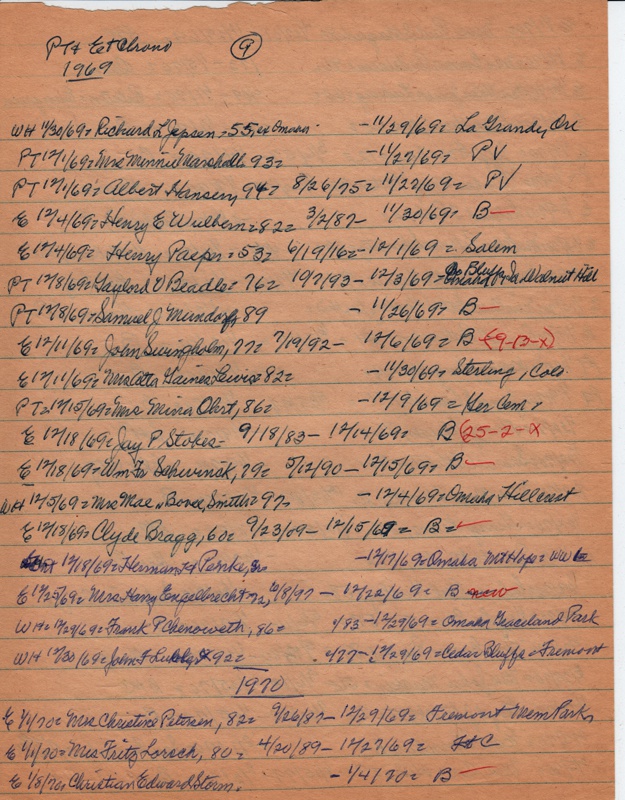 PT & Et Chrono ⑨
1969
WH 11/30/69= Richard L Jepsen =55, ex Omaha - 11/29/69= La Grande, Ore
PT 12/1/69= Mrs Minnie Marshall= 93= - 11/27/69= PV
PT 12/1/69= Albert Hansen, 94= 8/26/75= 11/27/69= PV
E 12/4/69= Henry E Wulbern=82= 3/2/87- 11/30/69= B-
E 12/4/69= Henry Pasper=53= 6/19/16=-12/1/69= Salem
PT 12/8/69= Gaylord V Beadle= 76= 10/7/93- 12/3/69- Co Bluffs Ia Walnut Hill
PT 12/8/69= Samuel J. Mundorf, 89 - 11/26/69= B-
E 12/11/69= John Swingholm, 77= 7/19/92- 12/6/69= B (9-13-X)
E 12/11/69= Mrs Etta Gaines Lewis= 82= - 11/30/69= Sterling, Colo
PT= 12/15/69= Mrs Mina Ohrt, 86= - 12/9/69= Ger Cem
E 12/18/69= Jay P Stokes- 9/18/83- 12/14/69= B (25-2-X
E 12/18/69= Wm Fr Schwinsk, 79= 5/12/90- 12/15/69= B-
WH 12/5/69= Mrs Mae Bovee, Smith= 97= - 12/4/69= Omaha Hillcrest
E 12/18/69= Clyde Bragg, 60= 9/23/09- 12/15/69= B=
12/18/69= Herman Penke, - 12/17/69= Omaha Mt Hope= WW
E 12/25/69= Mrs Harry Engelbrecht 72, 10/8/97 - 12/22/69= B new
WH= 12/29/69= Frank P Chenoweth, 86= 1/83-12/29/69= Omaha Graceland Park
WH 12/30/69= John F 92= 4/77- 12/29/69= Cedar Bluffs= Fremont
1970
E 1/1/70= Mrs Christine Petersen, 82= 9/26/87- 12/29/69= Fremont Mem Park
E 1/1/70= Mrs Fritz Lorsch, 80= 4/20/89- 12/27/69= C
E 1/8/70= Christian Edward Storm. - 1/4/70= B-